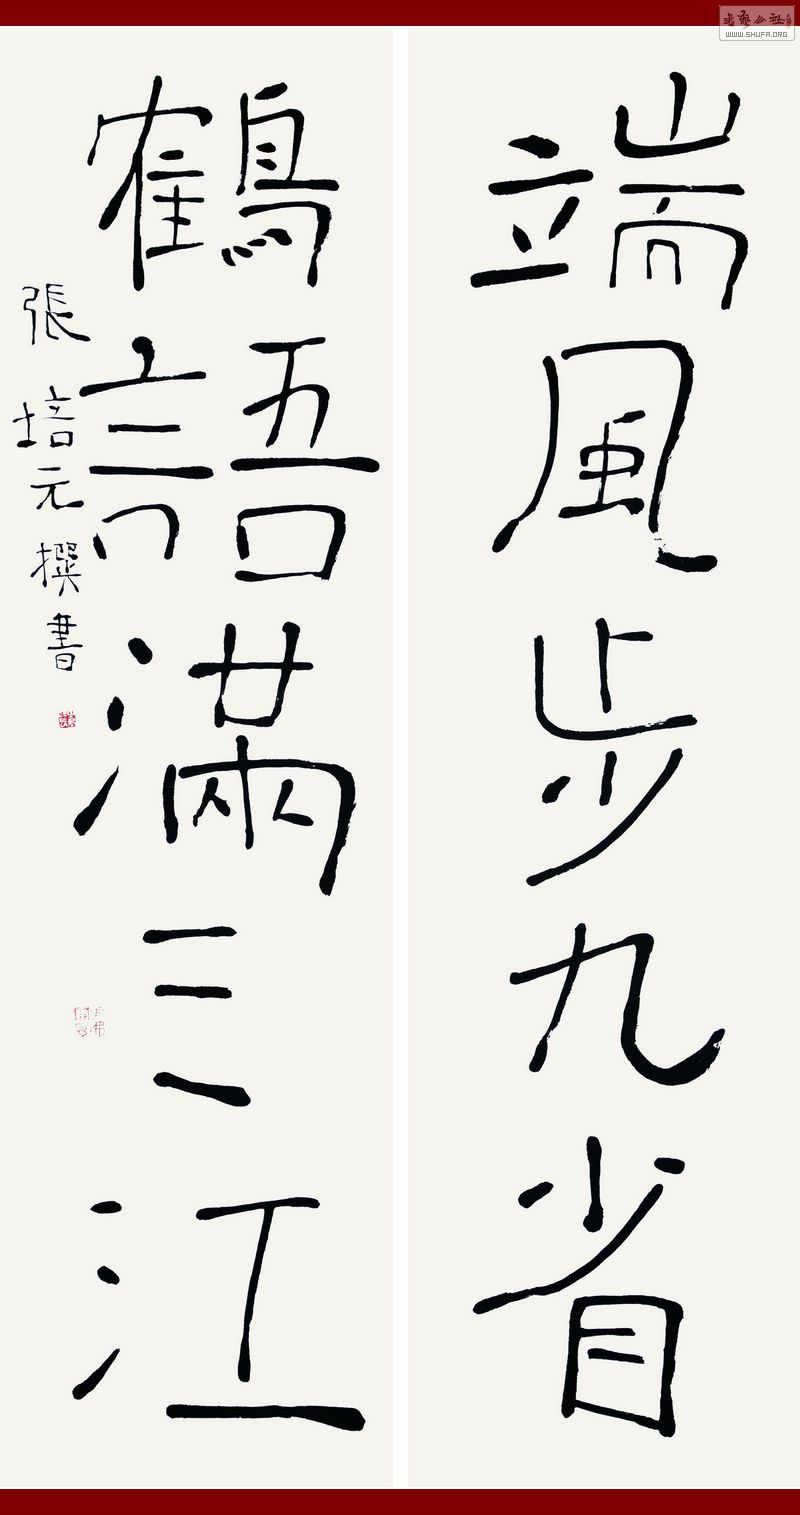 端風步九省
鶴語滿三江
張培元撰書
WWW.SHUFA.ORG